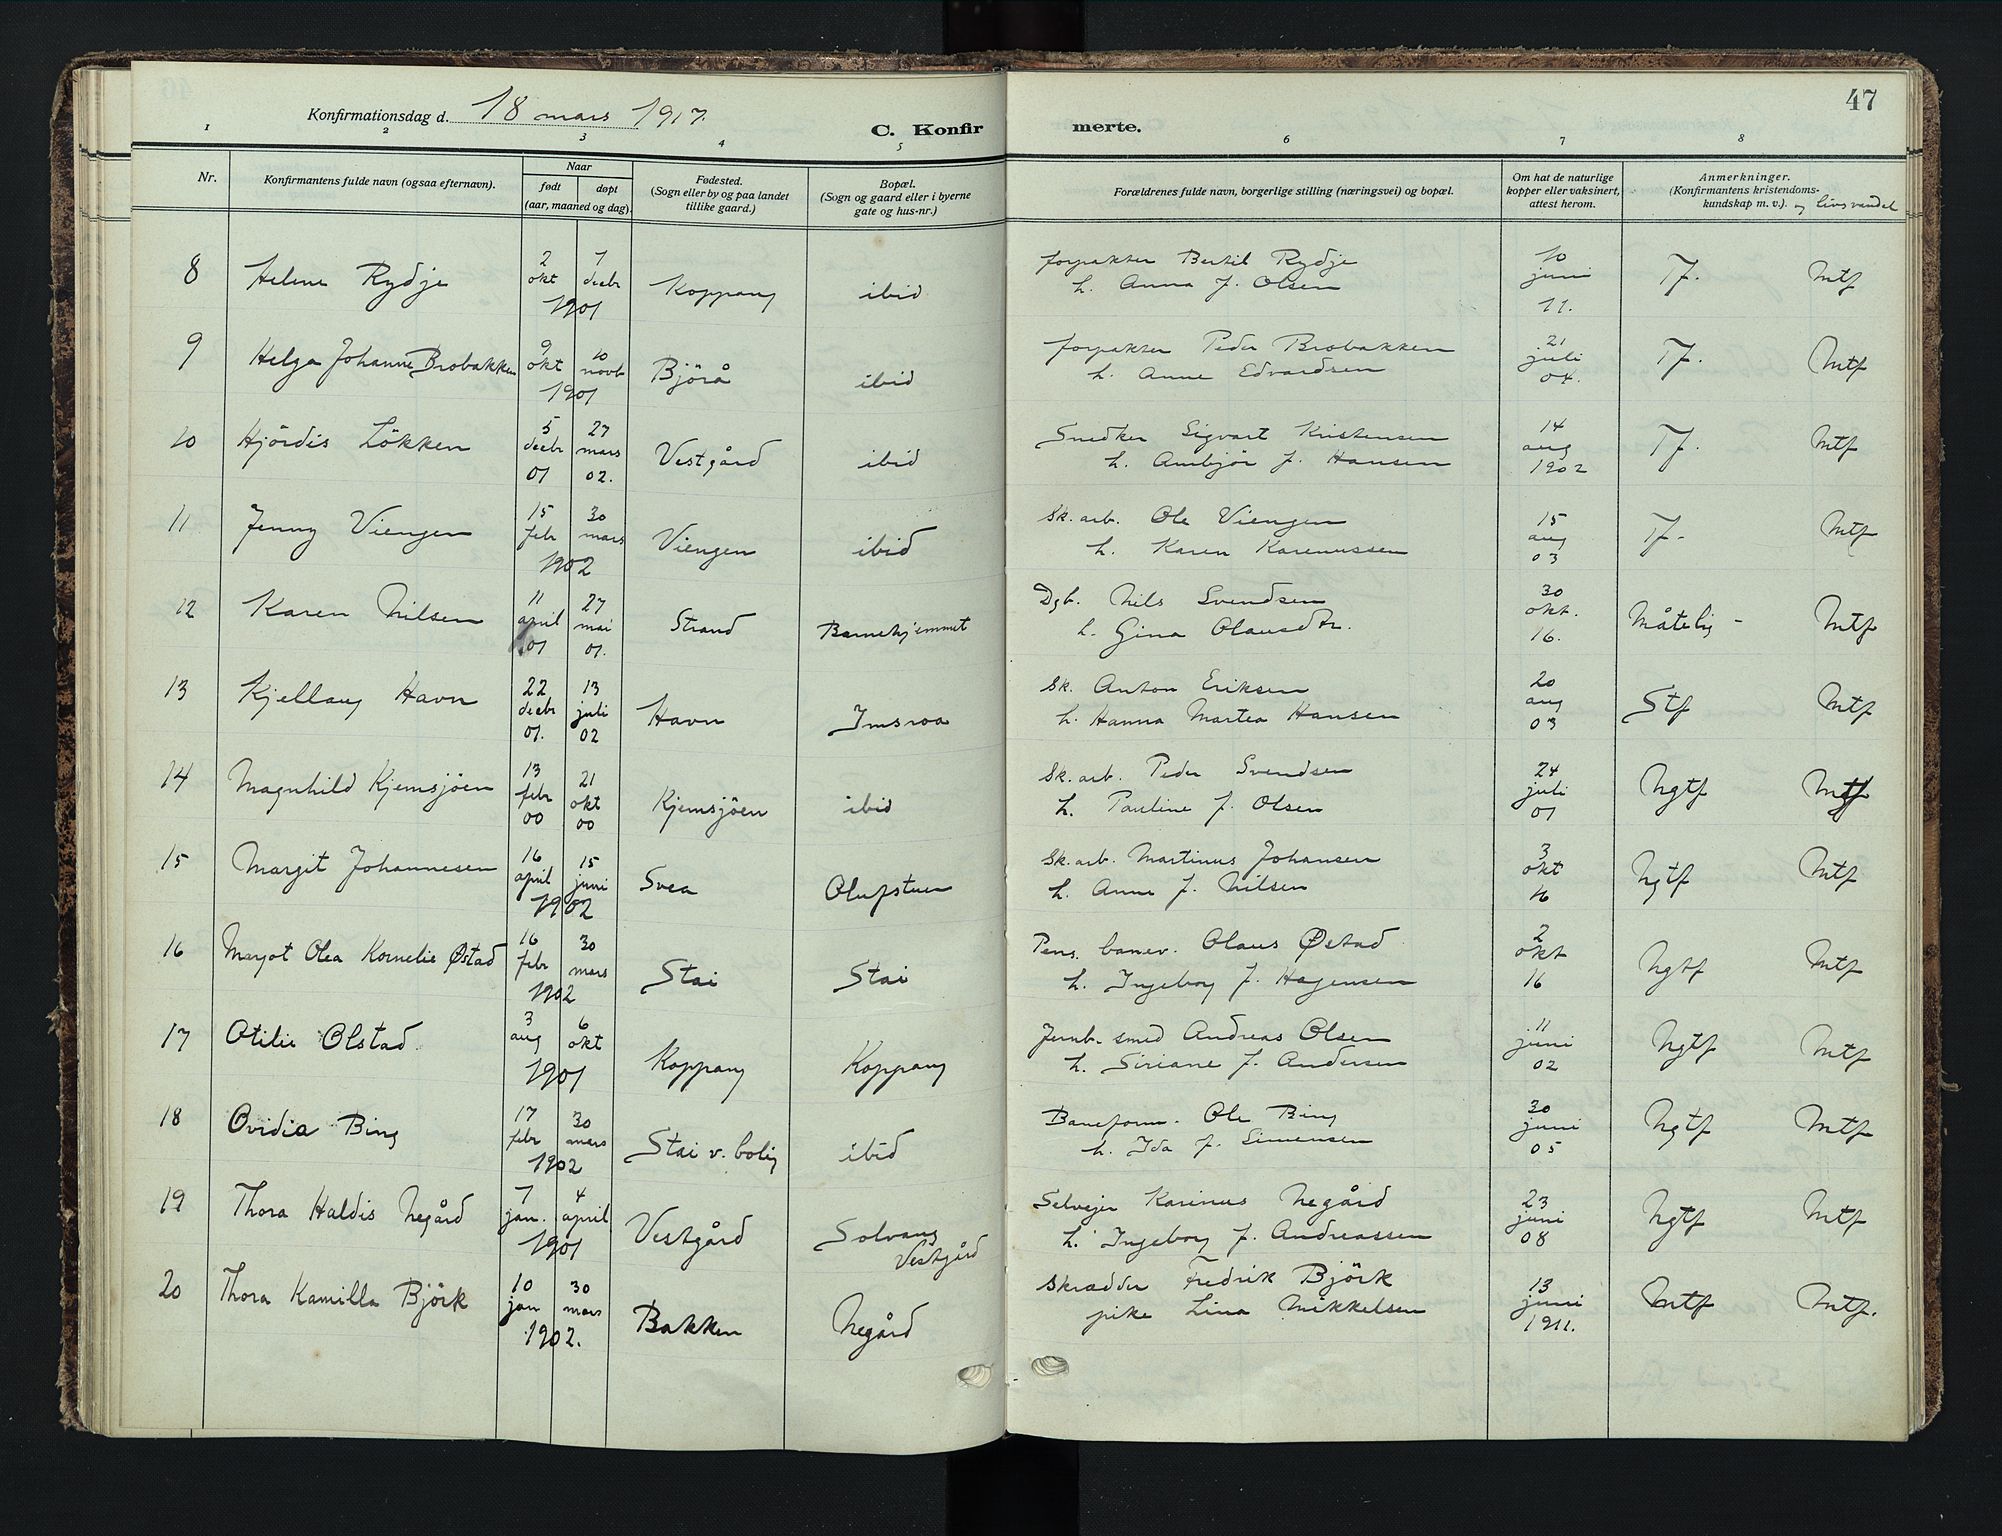 47
Konfirmationsdag d. 18 mars 1917.
C. Konfirmerte.
1 2 3 4 5 6 7 8
Nr.
Konfirmantens fulde navn (ogsaa efternavn).
Naar
født døpt
(aar, maaned og dag).
Fødested.
(Sogn eller by og paa landet
tillike gaard.)
Bopæl.
(Sogn og gaard eller i byerne
gate og hus-nr.)
Forældrenes fulde navn, borgerlige stilling (næringsvei) og bopæl.
Om hat de naturlige
kopper eller vaksinert,
attest herom.
Anmerkninger.
(Konfirmantens kristendoms-
kundskap m. v.). og livsvandel
8 Helene Rydje 2 okt 7 decbr 1901 Koppang ibid forpakter Bertil Rydje
h. Anna f. Olsen 10 juni 11. Tf. Mtf
9 Helga Johanne Brobakken 9 okt 10 novb 1901 Björå ibid forpakter Peder Brobakken
h. Anne Edvardsen 21 juli 04. Tf. Mtf
10 Hjördis Lökken 5 decbr 01 27 mars 02. Vestgård ibid Snedker Sigvart Kristensen
h. Ambjör f. Hansen 14 aug 1902 Tf. Mtf
11 Jenny Viengen 15 febr 30 mars 1902 Viengen ibid Sk. arb. Ole Viengen
h. Karen Karenussen 15 aug 03 Tf- Mtf
12 Karen Nilsen 11 april 01 27 mai 01. Strand Barnehjemmet Dgb. Nils Svendsen
h. Gina Olausdtr. 30 okt. 16. Måtelig - Mtf
13 Kjellaug Havn 22 decbr 01. 13 juli 02 Havn Imsroa Sk. Anton Eriksen
h. Hanna Martea Hansen 20 aug 03 Stf Mtf
14 Magnhild Kjemsjöen 13 febr 00 21 okt 00 Kjemsjöen ibid Sk. arb. Peder Svendsen
h. Pauline f. Olsen 24 juli 01 Ngtf Mtf
15 Margit Johannesen 16 april 15 juni 1902 Svea Olufstuen Sk. arb. Martinus Johansen
h. Anne f. Nilsen 3 okt 16 Ngtf Mtf
16 Margot Olea Kornelie Østad 16 febr 30 mars 1902 Stai Stai Pens. banev. Olaus Østad
h. Ingeborg f. Hagensen 2 okt 16 Ngtf Mtf
17 Otilie Olstad 3 aug 6 okt 1901 Koppang Koppang Jernb. smed Andreas Olsen
h. Siriane f. Andersen 11 juni 02 Ngtf Mtf
18 Ovidia Bing 17 febr 30 mars 1902 Stai v. bolig ibid Baneform. Ole Bing
h. Ida f. Simensen 30 juni 05 Ngtf Mtf
19 Thora Haldis Negård 7 jan. 4 april 1901 Vestgård Solvang Vestgård Selvejer Karinus Negård
h. Ingeborg f. Andreassen 23 juni 08 Ngtf Mtf
20 Thora Kamilla Björk 10 jan 30 mars 1902. Bakken Negård Skrædder Fredrik Björk
pike Lina Mikkelsen 13 juni 1911. Mtf Mtf.